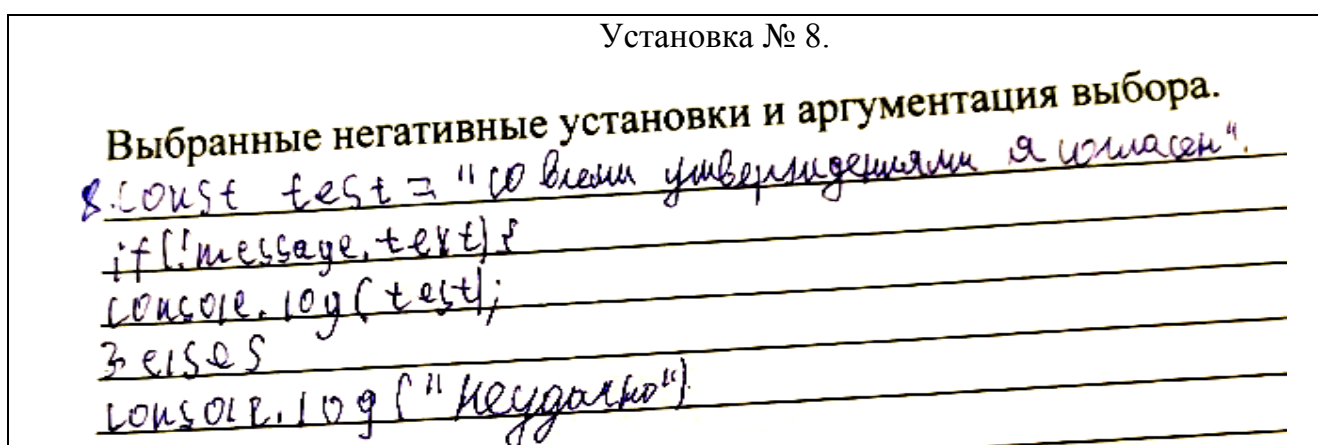 Установка № 8.
Выбранные негативные установки и аргументация выбора.
8. const test = "со всеми утверждениями я согласен".
if(!message.text){
console.log(test);
} else {
console.log("неудачно")